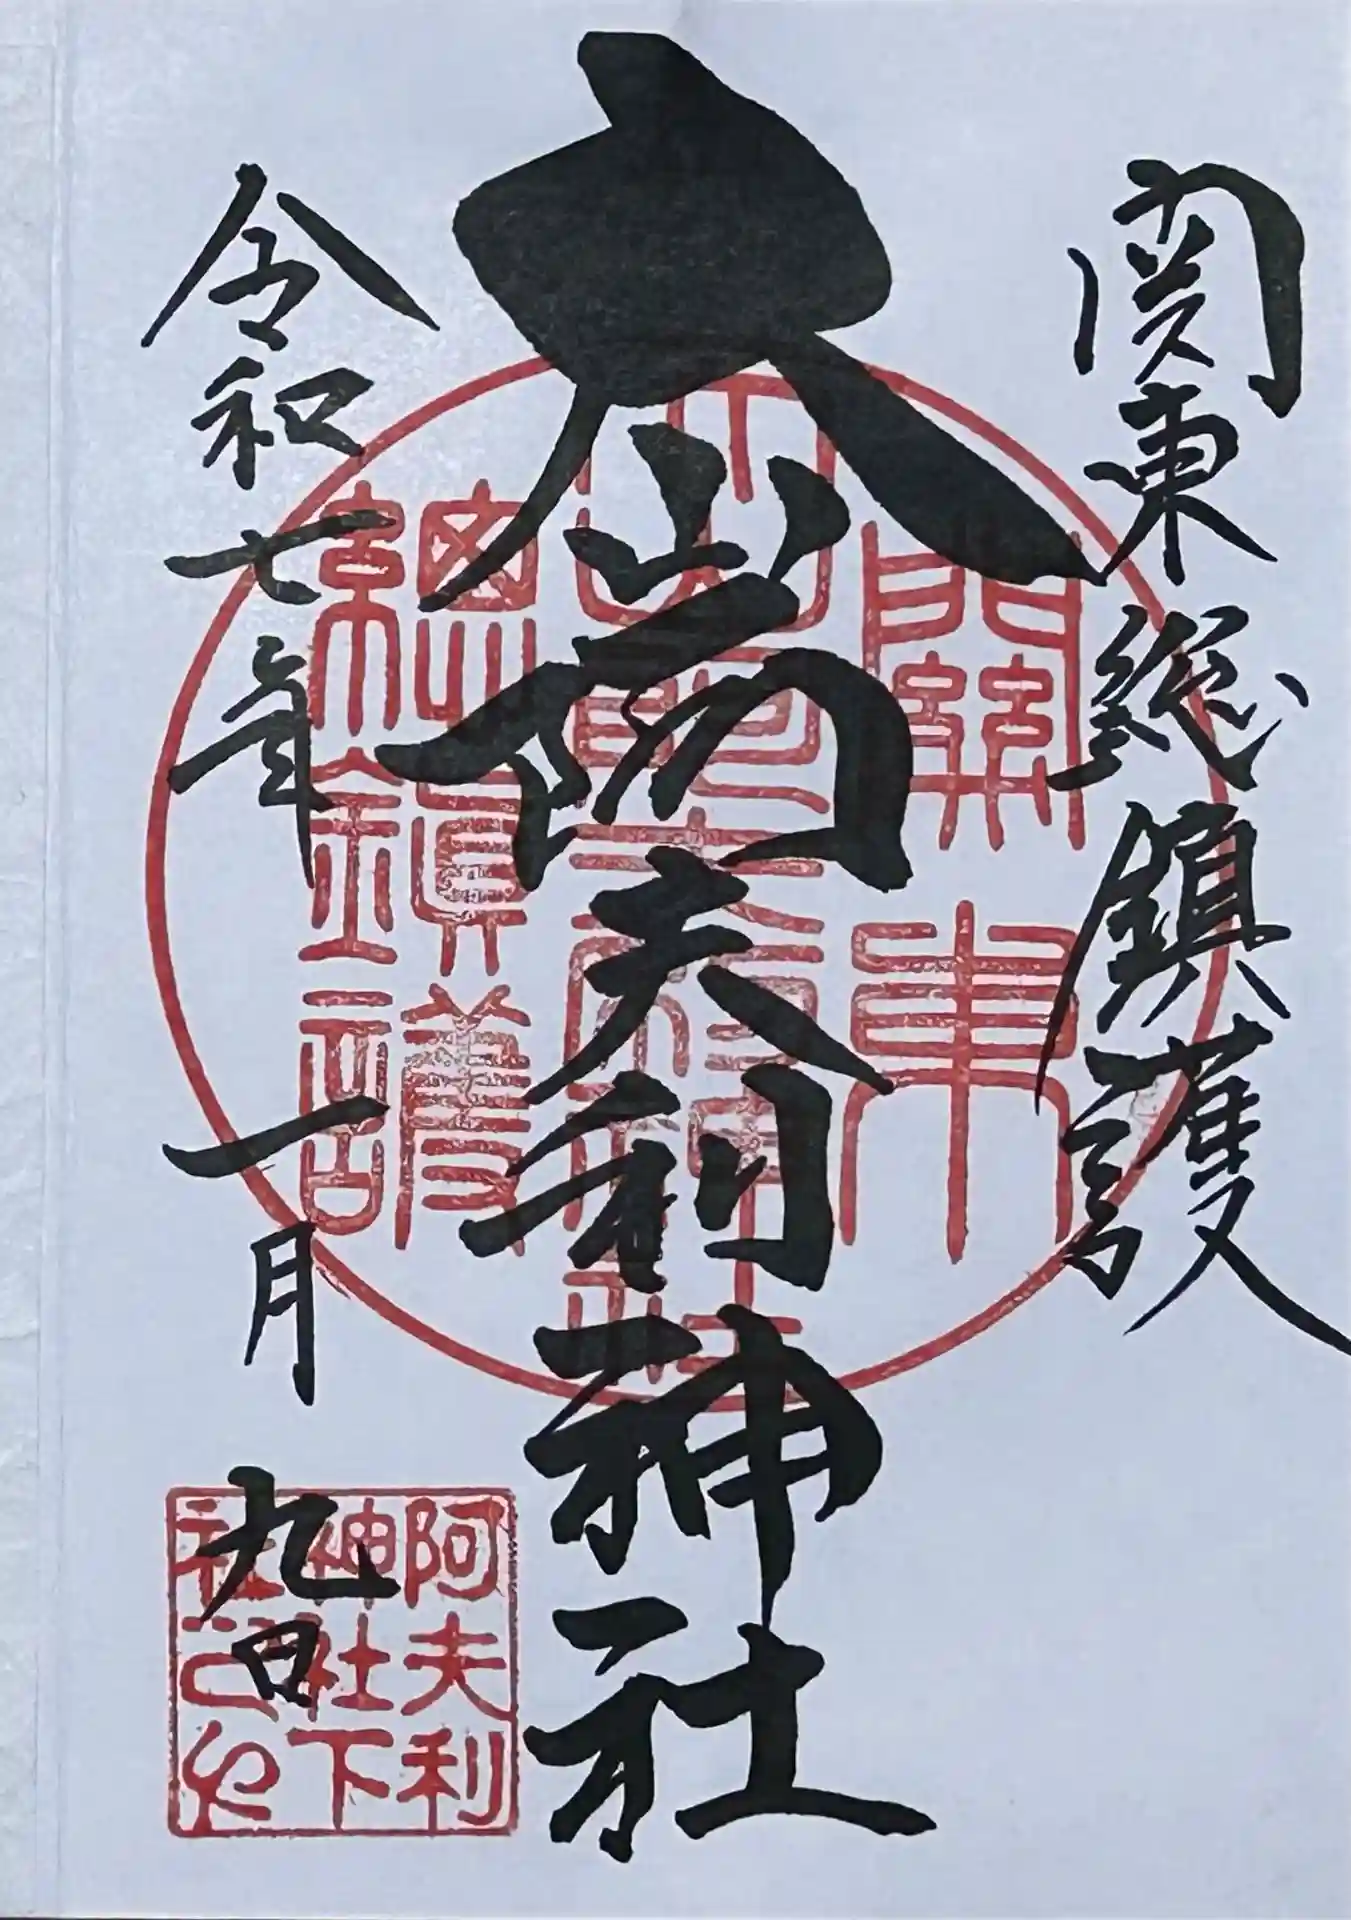 関東総鎮護
大山阿夫利神社
令和七年一月九日
關東
大山阿夫利神社
總鎮護
阿夫利
神社下
社之印